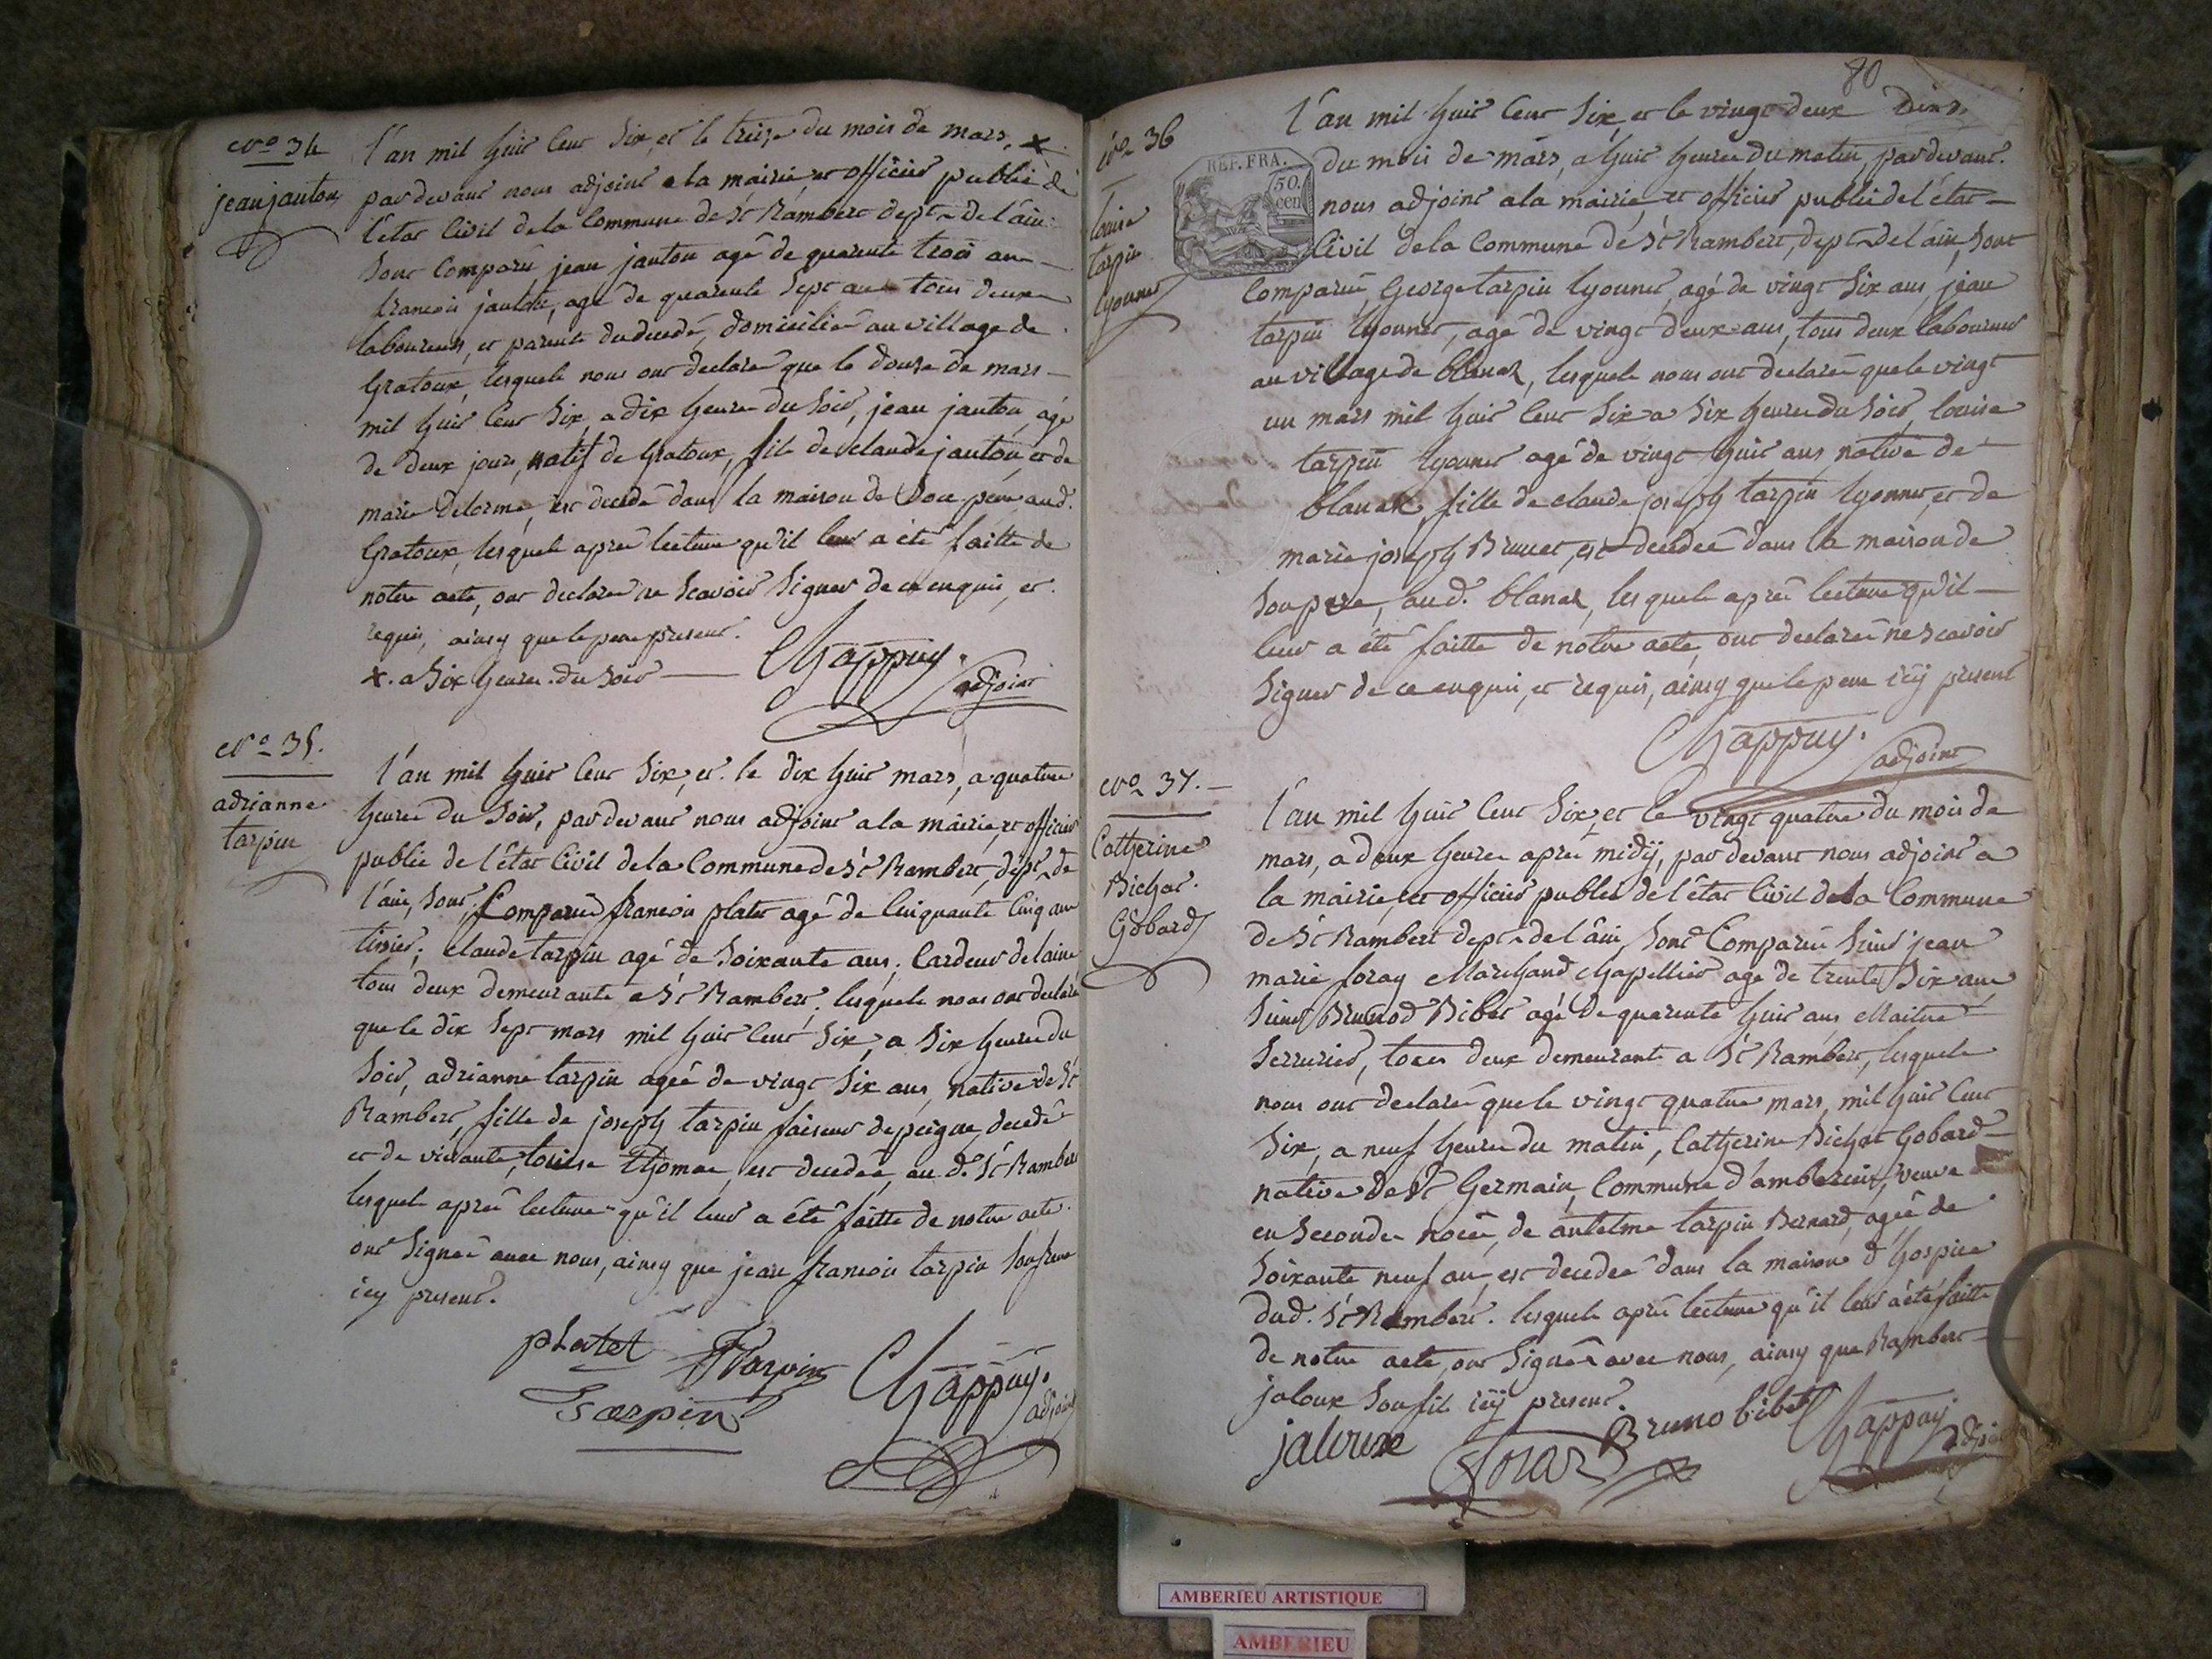 No 34
jean janton
l'an mil huit cent six, et le treize du mois de mars, x
pardevant nous adjoint a la mairie, et officier public de
l'etat civil de la commune de St Rambert dept de l'ain
sont comparu jean janton agé de quarente trois ans
francois janton, agé de quarente sept ans tous deux
laboureurs, et parents du decedé, domiciliés au village de
Gratoux, lesquels nous ont declaré que le douze de mars
mil huit cent six, a dix heures du soir, jean janton, agé
de deux jours, natif de Gratoux, fils de claude janton, et de
marie delorme, est decedé dans la maison de son pere aud.
Gratoux, lesquels après lecture qu'il leur a été faitte de
notre acte, ont declaré ne scavoir signer de ce enquis, et
requis, ainsy que le pere present.
x. a six heures du soir
Chappuy.
adjoint
No 35.
adrianne
tarpin
l'an mil huit cent six, et le dix huit mars, a quatre
heures du soir, pardevant nous adjoint a la mairie, et officier
public de l'état civil de la commune de St Rambert, dept de
l'ain, sont comparus francois platet agé de cinquante cinq ans
tissier, claude tarpin agé de soixante ans, cardeur de laine
tous deux demeurants a St Rambert, lesquels nous ont declaré
que le dix sept mars mil huit cent six, a six heures du
soir, adrianne tarpin agée de vingt six ans, native de St
Rambert, fille de joseph tarpin faiseur de peigne, decedé
et de vivante, louise Thomas, est decedée, au d. St Rambert
lesquels après lecture qu'il leur a été faitte de notre acte
ont signés avec nous, ainsy que jean francois tarpin son frere
icy present.
platet
Tarpin
Chappuy.
adjoint
Tarpin
80
No 36
louise
tarpin
lyonnet
REP. FRA.
50.
cen
l'an mil huit cent six, et le vingt deux
du mois de mars, a huit heures du matin, pardevant
nous adjoint a la mairie, et officier public de l'état
civil de la commune de St Rambert, dept de l'ain, sont
comparus, George tarpin lyonnet, agé de vingt six ans, jean
tarpin lyonnet, agé de vingt deux ans, tous deux laboureurs
au village de blanaz, lesquels nous ont declarés que le vingt
un mars mil huit cent six a six heures du soir, louise
tarpin lyonnet agé de vingt huit ans native de
blanaz, fille de claude joseph tarpin lyonnet, et de
marie joseph Brunet, est decedée dans la maison de
son pere, aud. blanaz, lesquels après lecture qu'il
leur a été faitte de notre acte, ont declarés ne scavoir
signer de ce enquis, et requis, ainsy que le pere icy present
Chappuy.
adjoint
No 37.
Catherine
Bichat.
Gobard
l'an mil huit cent six, et le vingt quatre du mois de
mars, a deux heures après midy, pardevant nous adjoint a
la mairie, et officier public de l'état civil de la commune
de St Rambert dept de l'ain, sont comparus sieur jean
marie foray marchand chapellier agé de trente six ans
sieur Brunod Bibet agé de quarente huit ans maitre
serrurier, tous deux demeurants a St Rambert, lesquels
nous ont declaré que le vingt quatre mars, mil huit cent
six, a neuf heures du matin, Catherine Bichat Gobard
native de St Germain, commune d'amberieux, veuve
en secondes noces, de antelme tarpin Bernard, agée de
soixante neuf ans, est decedée dans la maison d'hospice
dud. St Rambert. lesquels après lecture qu'il leur a été faitte
de notre acte, ont signés avec nous, ainsy que Rambert
jaloux son fils icy present.
jaloux
foraz
Bruno bibet
Chappuy
adjoint
AMBERIEU ARTISTIQUE
AMBERIEU